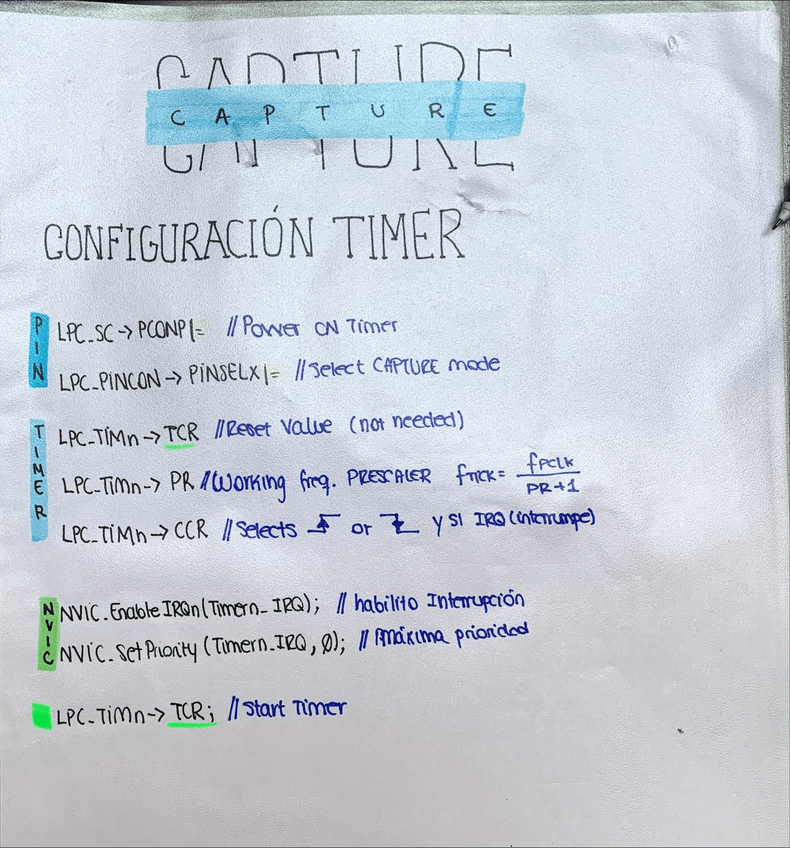 CAPTURE
CAPTURE
CONFIGURACIÓN TIMER
PIN
LPC_SC -> PCONP |= //Power ON Timer
LPC_PINCON -> PINSELX |= //Select CAPTURE mode
TIMER
LPC_TIMn -> TCR //Reset Value (not needed)
LPC_TIMn -> PR //Working freq. PRESCALER fTICK = fPCLK / PR+1
LPC_TIMn -> CCR //Selects or y si IRQ (interrumpe)
NVIC
NVIC.EnableIRQn(Timern_IRQ); //habilito Interrupción
NVIC.SetPriority(Timern_IRQ, Ø); //Máxima prioridad
LPC_TIMn -> TCR; //Start Timer